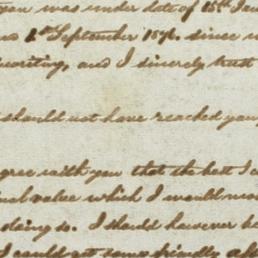 you was under date of 15th Jan
1st September 1871. since
writing, and I sincerely trust
should not have reached you
agree with you that the best I
value which I would
doing so. I should however be
I could get some friendly